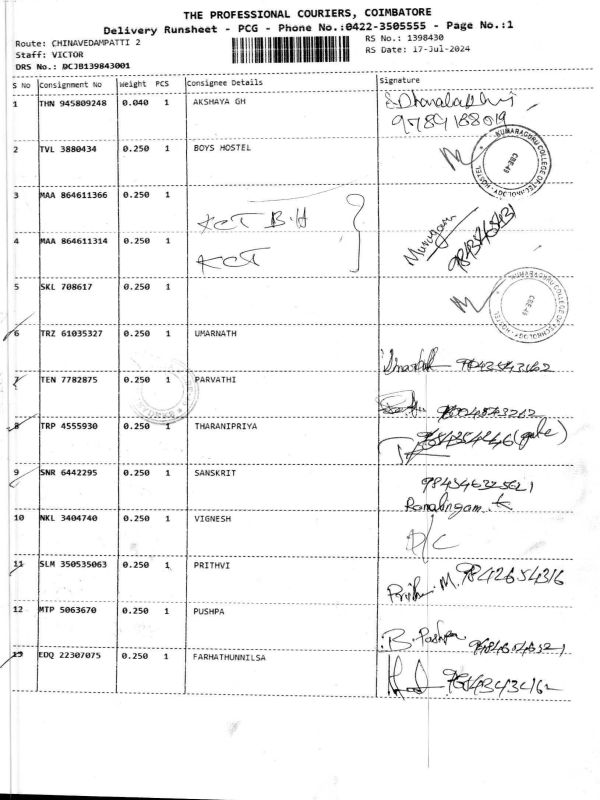 THE PROFESSIONAL COURIERS, COIMBATORE
Delivery Runsheet - PCG - Phone No.:0422-3505555 - Page No.:1
Route: CHINAVEDAMPATTI 2
RS No.: 1398430
Staff: VICTOR
RS Date: 17-Jul-2024
DRS No.: DCJB139843001
S No Consignment No Weight PCS Consignee Details Signature
1 THN 945809248 0.040 1 AKSHAYA GH
9784188019
2 TVL 3880434 0.250 1 BOYS HOSTEL
KUMARAGURU COLLEGE OF TECHNOLOGY - HOSTEL
CBE-49
3 MAA 864611366 0.250 1
KCT B.H
Murugan
4 MAA 864611314 0.250 1
KCT
5 SKL 708617 0.250 1
KUMARAGURU COLLEGE OF TECHNOLOGY - HOSTEL
CBE-49
6 TRZ 61035327 0.250 1 UMARNATH
7 TEN 7782875 0.250 1 PARVATHI
8 TRP 4555930 0.250 1 THARANIPRIYA
(gate)
9 SNR 6442295 0.250 1 SANSKRIT
Ramalingam. K
10 NKL 3404740 0.250 1 VIGNESH
D/C
11 SLM 350535063 0.250 1 PRITHVI
Prithi M. 9842654316
12 MTP 5063670 0.250 1 PUSHPA
B. Pushpa
13 EDQ 22307075 0.250 1 FARHATHUNNILSA